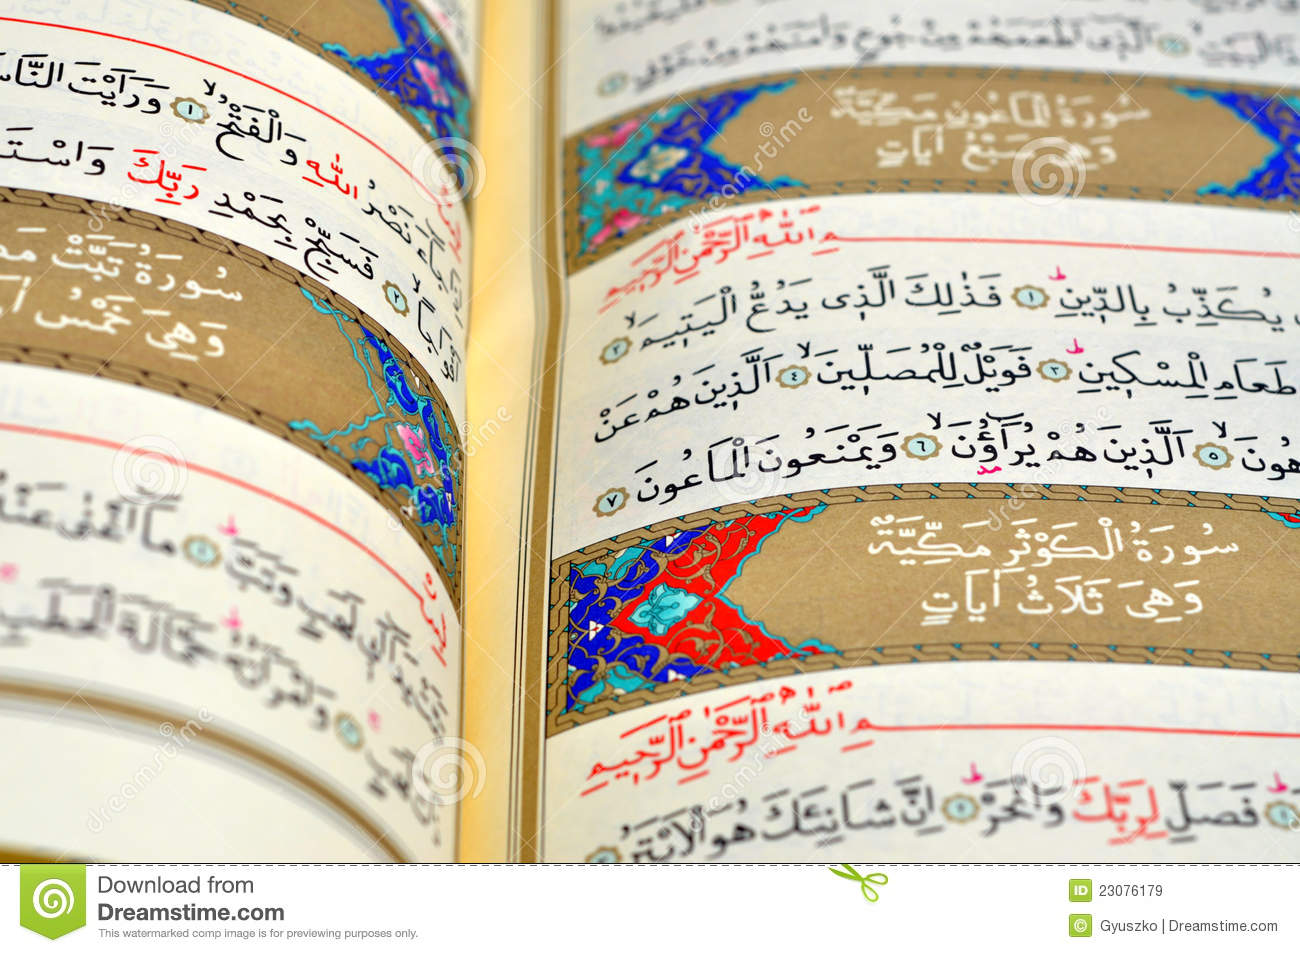 الَّذِى اَطْعَمَهُمْ مِنْ جُوعٍ وَاٰمَنَهُمْ مِنْ خَوْفٍ
سُورَةُ الْمَاعُونِ مَكِّيَّةٌ
وَهِىَ سَبْعُ اٰيَاتٍ
ـمِ اللّٰهِ الرَّحْمٰنِ الرَّحِيمِ
يُكَذِّبُ بِالدِّينِ ١ فَذٰلِكَ الَّذِى يَدُعُّ الْيَتِيمَ ٢
طَعَامِ الْمِسْكِينِ ٣ فَوَيْلٌ لِلْمُصَلِّينَ ٤ اَلَّذِينَ هُمْ عَنْ
ـهُونَ ٥ اَلَّذِينَ هُمْ يُرَآؤُنَ ٦ وَيَمْنَعُونَ الْمَاعُونَ ٧
سُورَةُ الْكَوْثَرِ مَكِّيَّةٌ
وَهِىَ ثَلَاثُ اٰيَاتٍ
ـمِ اللّٰهِ الرَّحْمٰنِ الرَّحِيمِ
١ فَصَلِّ لِرَبِّكَ وَانْحَرْ ٢ اِنَّ شَانِئَكَ هُوَ الْاَبْتَرُ
جَآءَ نَصْرُ اللّٰهِ وَالْفَتْحُ ١ وَرَاَيْتَ النَّاسَ
اَفْوَاجًا ٢ فَسَبِّحْ بِحَمْدِ رَبِّكَ وَاسْتَـ
سُورَةُ تَبَّتْ مَـ
وَهِىَ خَمْسُ اٰيَـ
وَتَبَّ ١ مَا اَغْنٰى عَنْهُ
لَهَبٍ وَامْرَاَتُهُ حَمَّالَةَ الْحَطَبِ
Download from
Dreamstime.com
This watermarked comp image is for previewing purposes only.
ID 23076179
© Gyuszko | Dreamstime.com